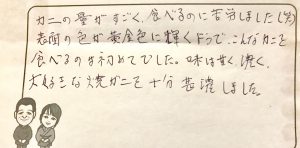 カニの量がすごく、食べるのに苦労しました(笑)
表面の色が黄金色に輝くようで、こんなカニを
食べるのは初めてでした。味は甘く、濃く、
大好きな焼ガニを十分堪能しました。